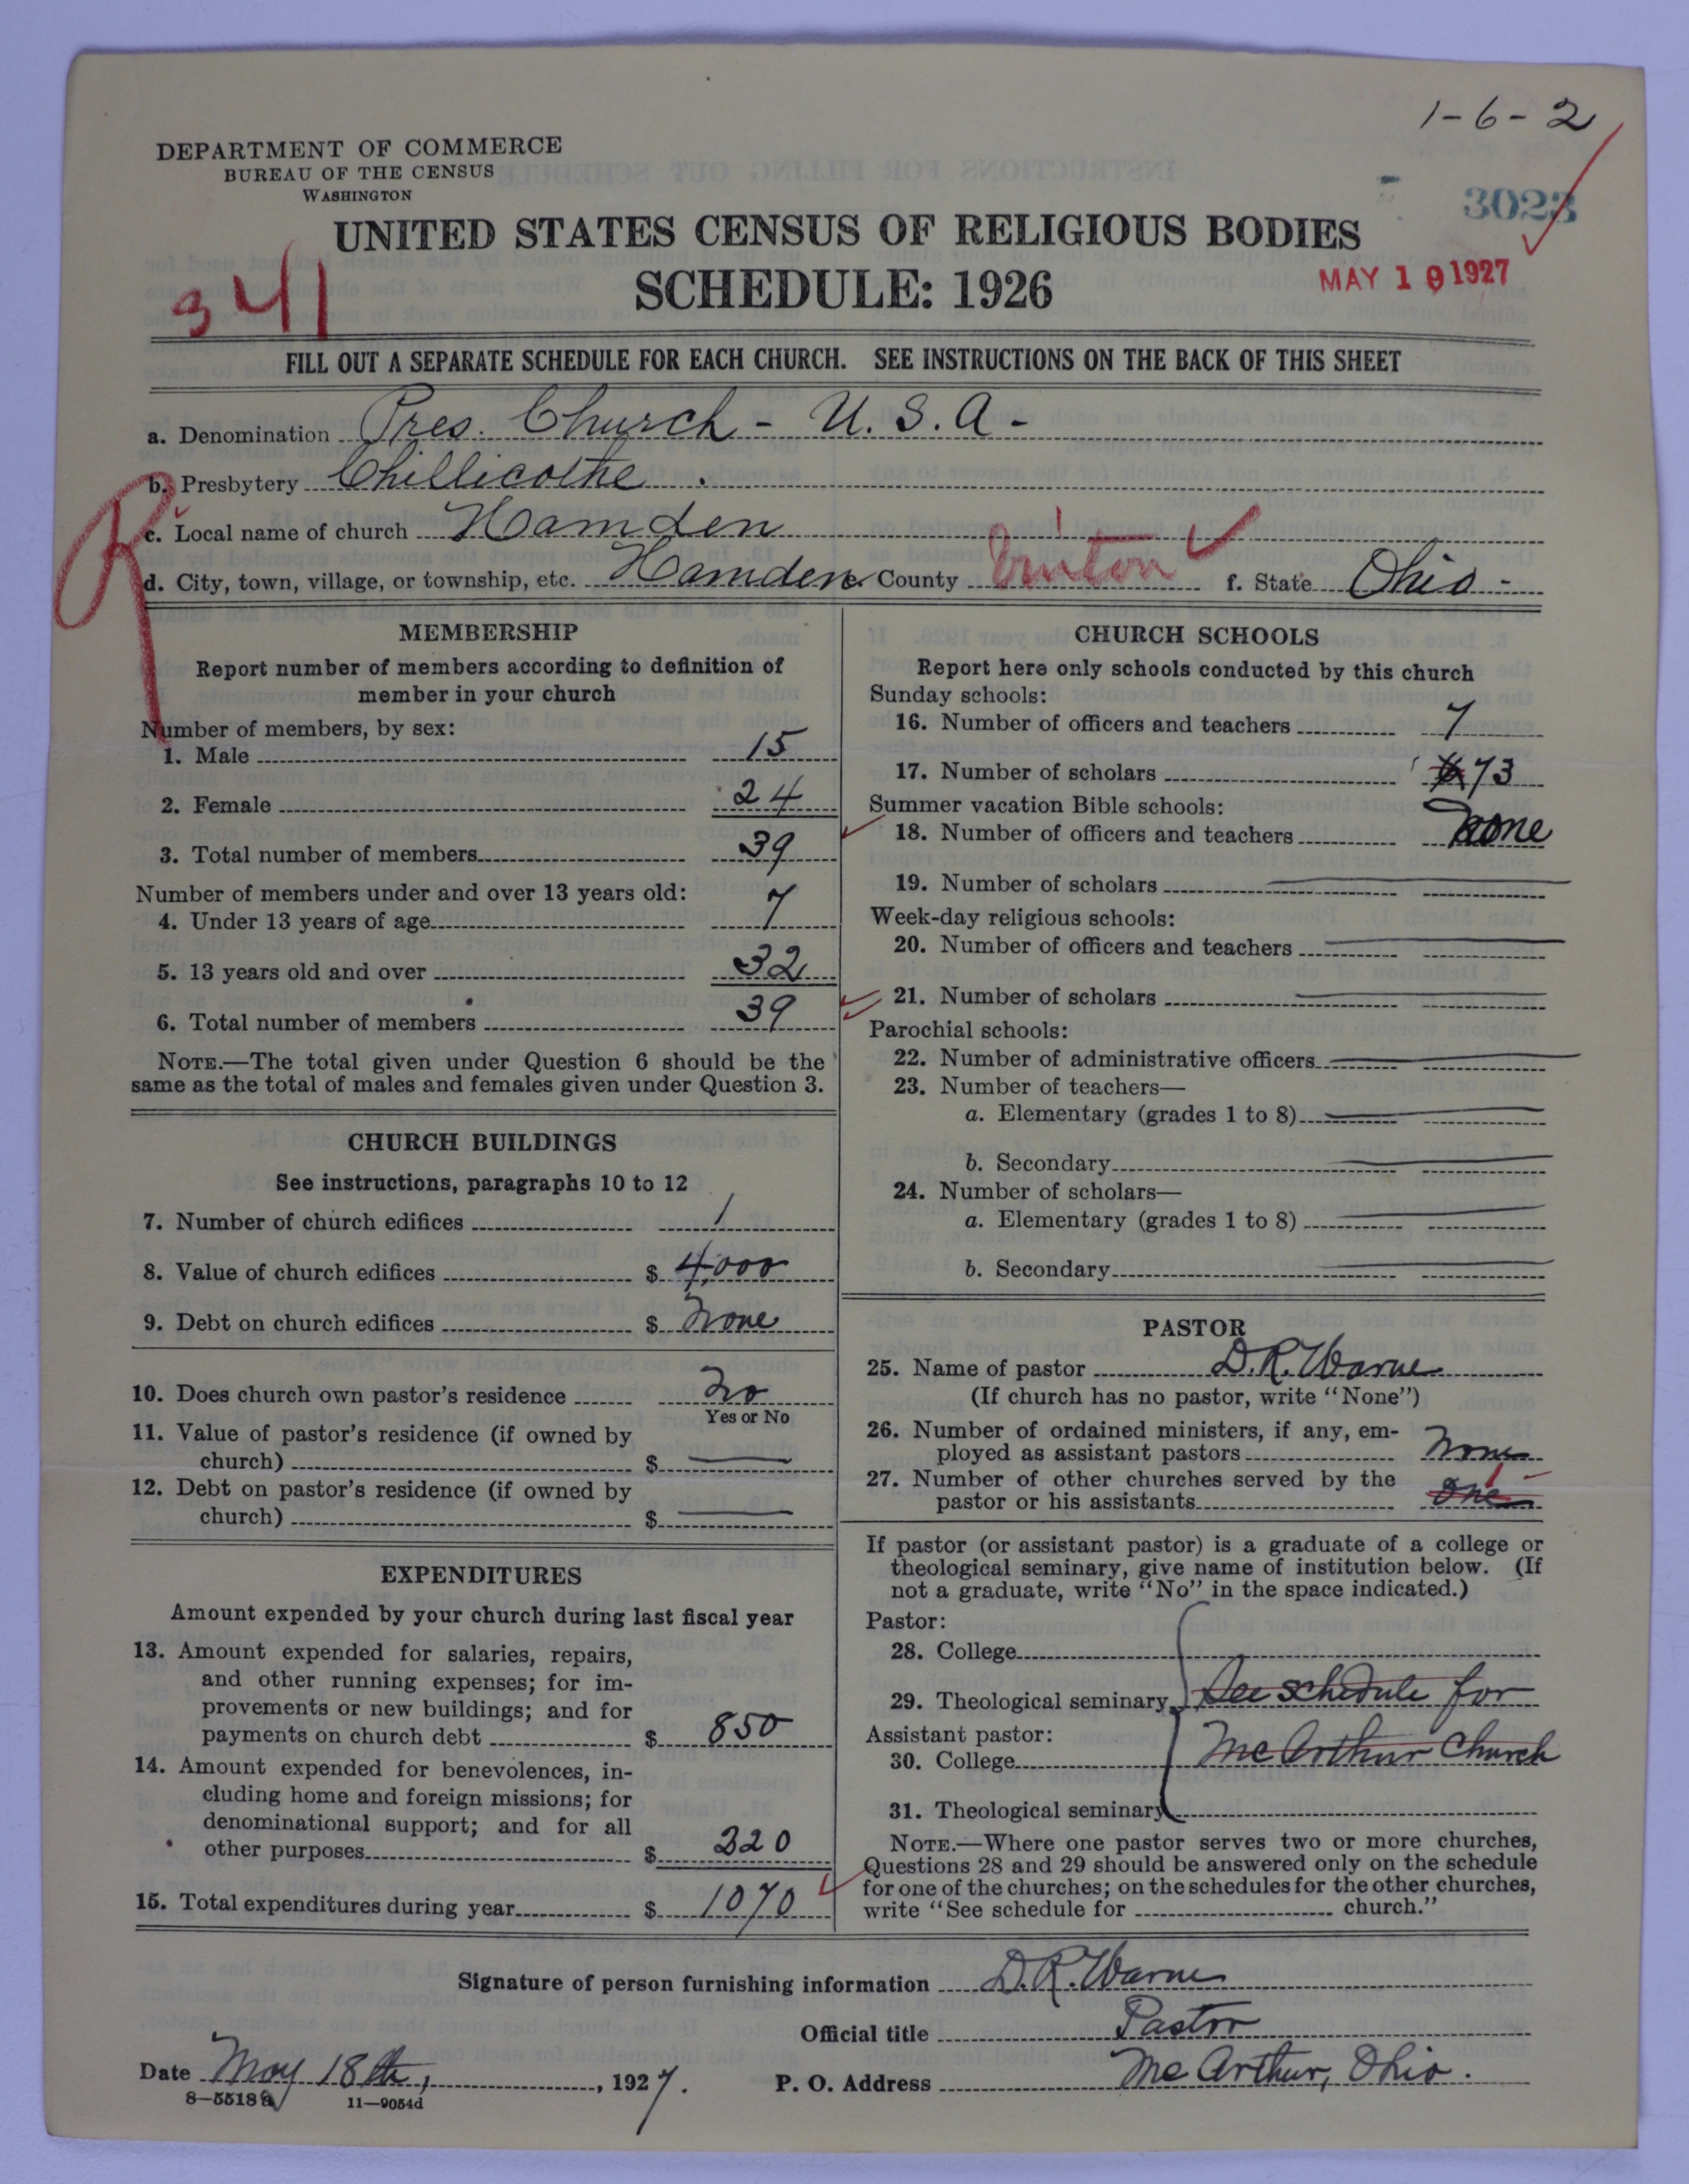 1-6-2
DEPARTMENT OF COMMERCE
BUREAU OF THE CENSUS
WASHINGTON
3023
UNITED STATES CENSUS OF RELIGIOUS BODIES
SCHEDULE: 1926
MAY 19 1927
341
FILL OUT A SEPARATE SCHEDULE FOR EACH CHURCH. SEE INSTRUCTIONS ON THE BACK OF THIS SHEET
a. Denomination Pres. Church - U. S. A -
b. Presbytery Chillicothe.
c. Local name of church Hamden
d. City, town, village, or township, etc. Hamden e. County Vinton f. State Ohio -
R
MEMBERSHIP
Report number of members according to definition of
member in your church
Number of members, by sex:
1. Male 15
2. Female 24
3. Total number of members 39
Number of members under and over 13 years old:
4. Under 13 years of age 7
5. 13 years old and over 32
6. Total number of members 39
NOTE.—The total given under Question 6 should be the
same as the total of males and females given under Question 3.
CHURCH BUILDINGS
See instructions, paragraphs 10 to 12
7. Number of church edifices 1
8. Value of church edifices $ 4,000
9. Debt on church edifices $ None
10. Does church own pastor's residence No
Yes or No
11. Value of pastor's residence (if owned by
church) $
12. Debt on pastor's residence (if owned by
church) $
EXPENDITURES
Amount expended by your church during last fiscal year
13. Amount expended for salaries, repairs,
and other running expenses; for im-
provements or new buildings; and for
payments on church debt $ 850
14. Amount expended for benevolences, in-
cluding home and foreign missions; for
denominational support; and for all
other purposes $ 220
15. Total expenditures during year $ 1070
CHURCH SCHOOLS
Report here only schools conducted by this church
Sunday schools:
16. Number of officers and teachers 7
17. Number of scholars 73
Summer vacation Bible schools:
18. Number of officers and teachers None
19. Number of scholars
Week-day religious schools:
20. Number of officers and teachers
21. Number of scholars
Parochial schools:
22. Number of administrative officers
23. Number of teachers—
a. Elementary (grades 1 to 8)
b. Secondary
24. Number of scholars—
a. Elementary (grades 1 to 8)
b. Secondary
PASTOR
25. Name of pastor D.R. Warne
(If church has no pastor, write "None")
26. Number of ordained ministers, if any, em-
ployed as assistant pastors None
27. Number of other churches served by the
pastor or his assistants One 1
If pastor (or assistant pastor) is a graduate of a college or
theological seminary, give name of institution below. (If
not a graduate, write "No" in the space indicated.)
Pastor:
28. College
29. Theological seminary See schedule for
Assistant pastor:
30. College McArthur Church
31. Theological seminary
NOTE.—Where one pastor serves two or more churches,
Questions 28 and 29 should be answered only on the schedule
for one of the churches; on the schedules for the other churches,
write "See schedule for church."
Signature of person furnishing information D.R. Warne
Official title Pastor
Date May 18th, 1927.
P. O. Address McArthur, Ohio.
8-5518a
11-9054d